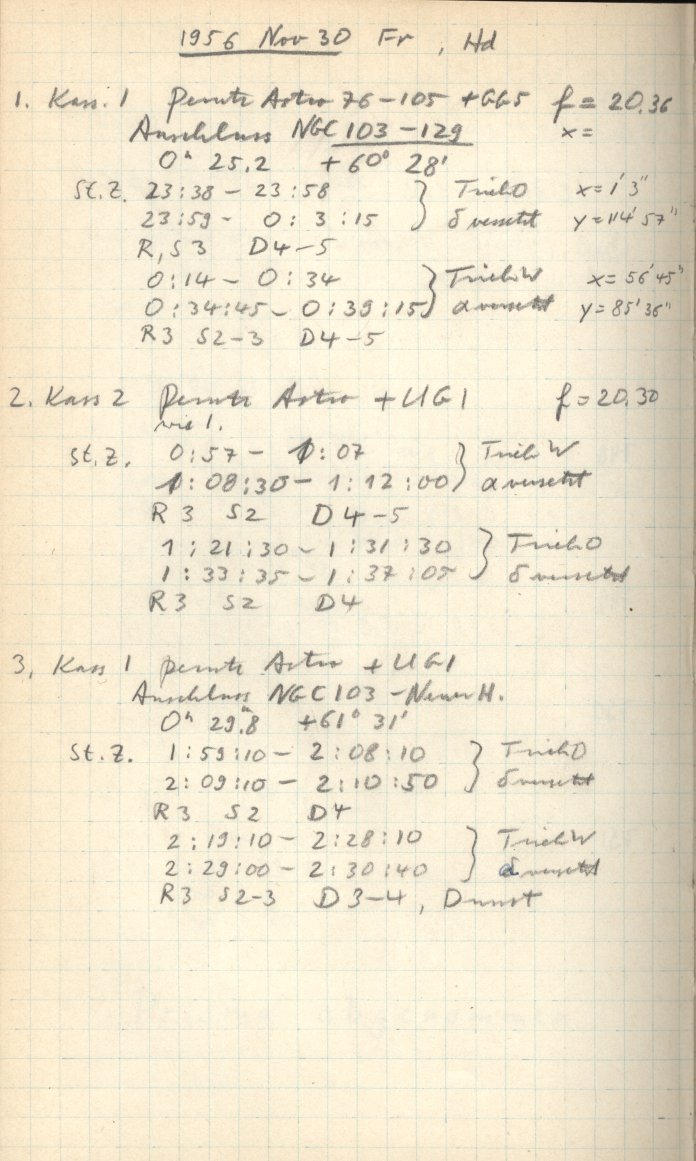 1956 Nov 30 Fr , Hd
1. Kass. 1 Perutz Astro 76-105 + GG5 f = 20.36
Anschluss NGC 103 - 129 x =
0h 25.2 +60° 28'
St.Z. 23:38 - 23:58 } x = 1' 3"
23:59 - 0:3:15 δ versetzt y = 114' 57"
R, S 3 D4-5
0:14 - 0:34 } x = 56' 45"
0:34:45 - 0:39:15 α versetzt y = 85' 36"
R3 S2-3 D4-5
2. Kass 2 Perutz Astro + UG1 f = 20.30
wie 1.
St.Z. 0:57 - 1:07 }
1:08:30 - 1:12:00 α versetzt
R3 S2 D4-5
1:21:30 - 1:31:30 }
1:33:35 - 1:37:05 δ versetzt
R3 S2 D4
3, Kass 1 Perutz Astro + UG1
Anschluss NGC 103 - Neuer H.
0h 29.m8 +61° 31'
St.Z. 1:59:10 - 2:08:10 }
2:09:10 - 2:10:50 δ versetzt
R3 S2 D4
2:19:10 - 2:28:10 }
2:29:00 - 2:30:40 α versetzt
R3 S2-3 D3-4, Dunst